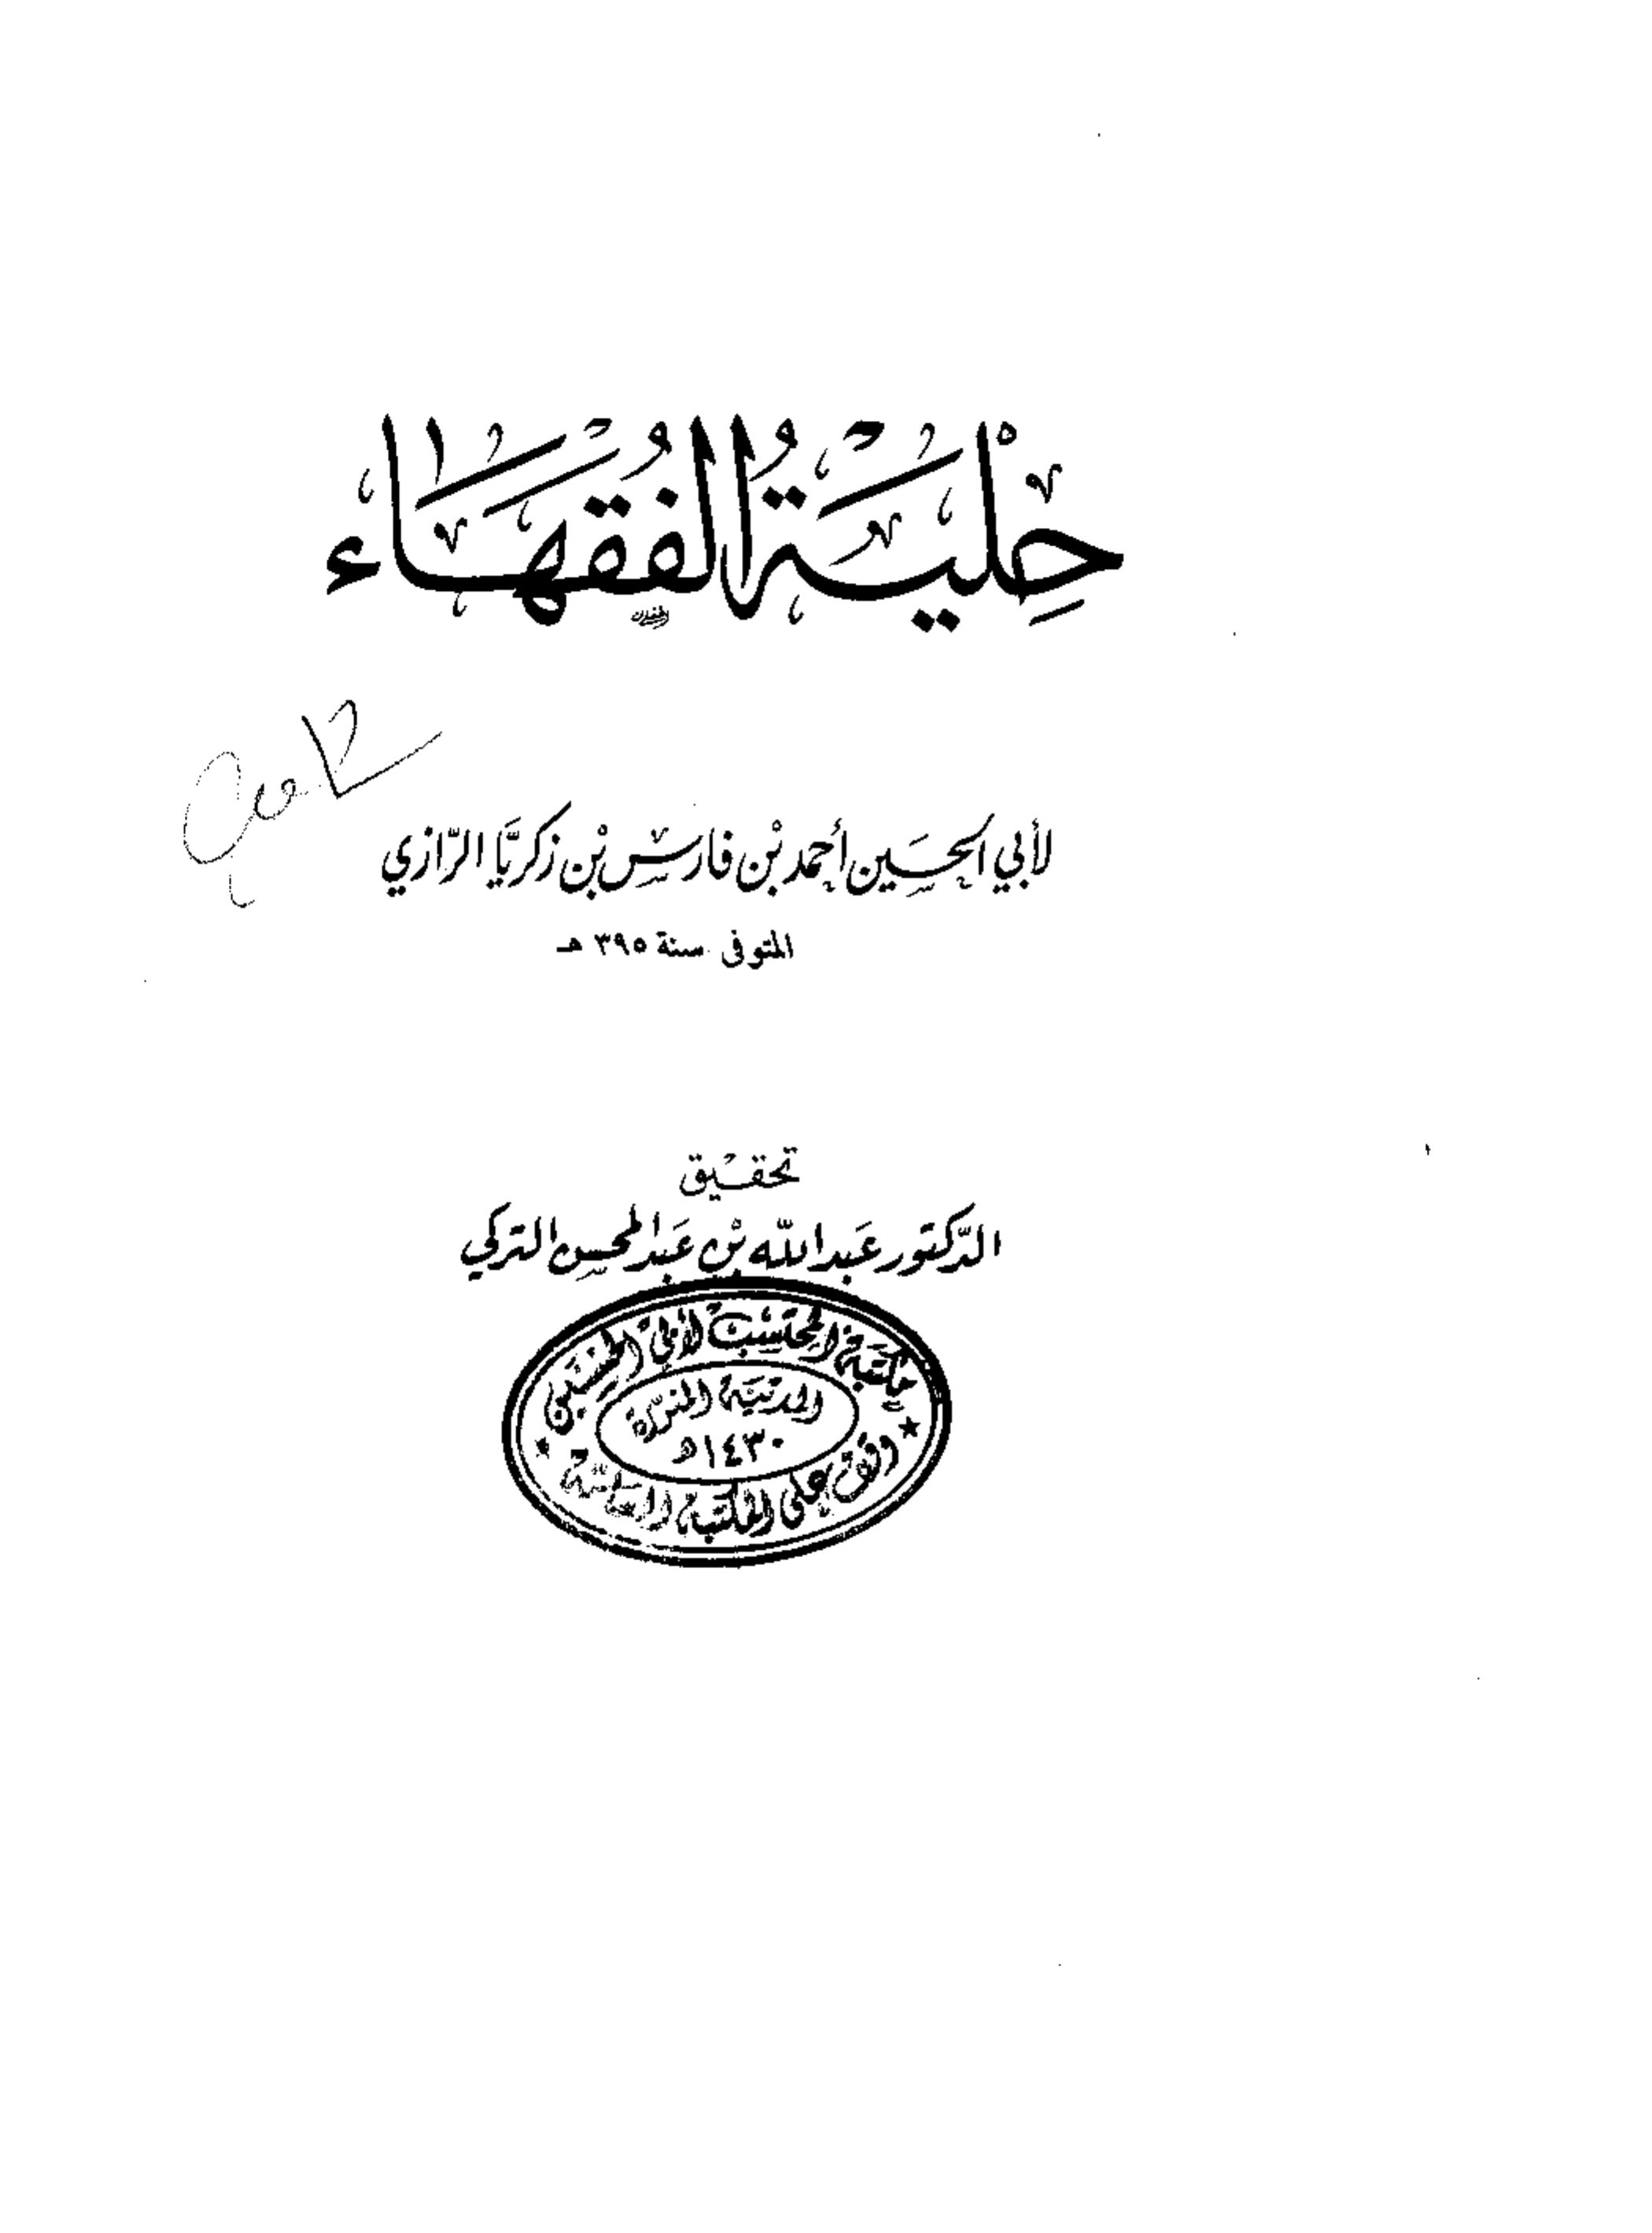 حِلْيَةُ الفُقَهَاء
لأبي الحسَين أحمد بْن فارسْ بْن زكريَّا الرّازي
المتوفى سنة ٣٩٥ هـ
تحقـيق
الدّكتور عَبد الله بْن عَبد المحسن التركي
مكتبة المحتسب
المدينة المنورة
١٤٣٠هـ
وقف على المكتبة